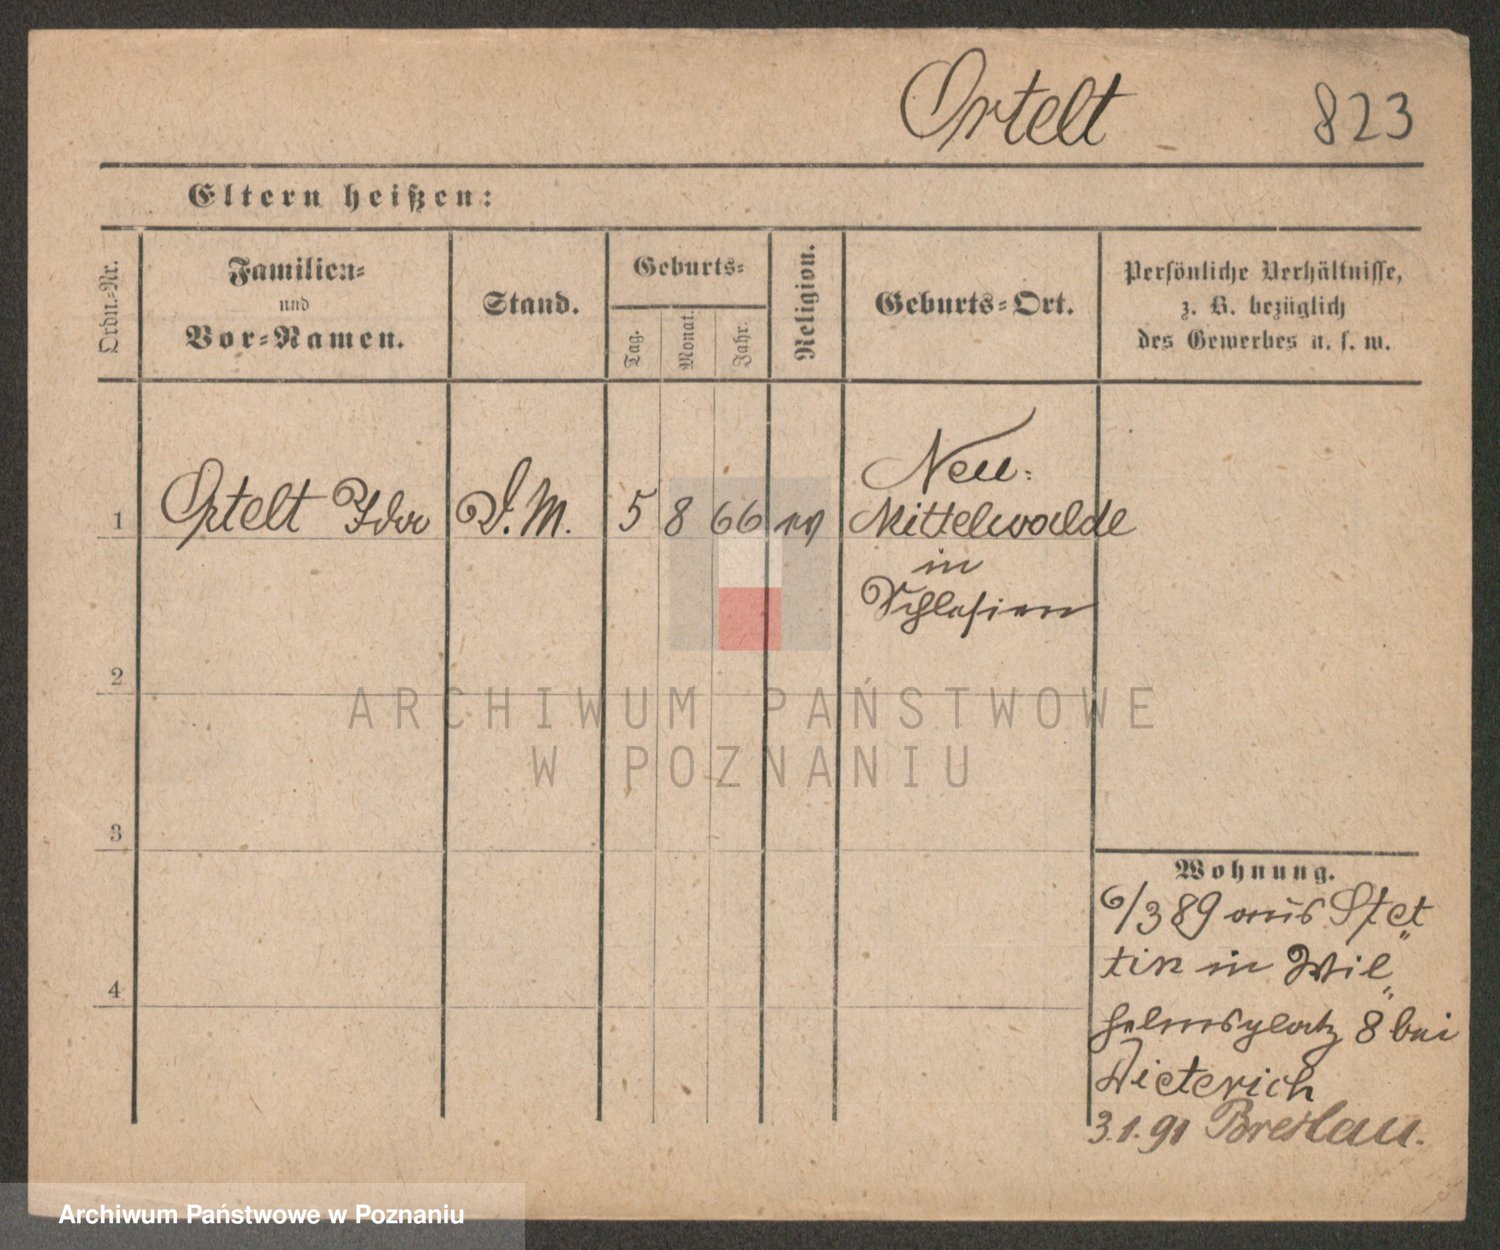 Ortelt 823
Eltern heißen:
Ordn.-Nr.
Familien-
und
Vor-Namen.
Stand.
Geburts-
Tag.
Monat.
Jahr.
Religion.
Geburts-Ort.
Persönliche Verhältnisse,
z. B. bezüglich
des Gewerbes u. s. w.
1 Ortelt Ida D. M. 5 8 66 Neu-
Mittelwalde
in
Schlesien
2
3
4
Wohnung.
6/3 89 aus Stet„
tin in Wil„
helmsplatz 8 bei
Dieterich
3.1.91 Breslau.
ARCHIWUM PAŃSTWOWE
W POZNANIU
Archiwum Państwowe w Poznaniu